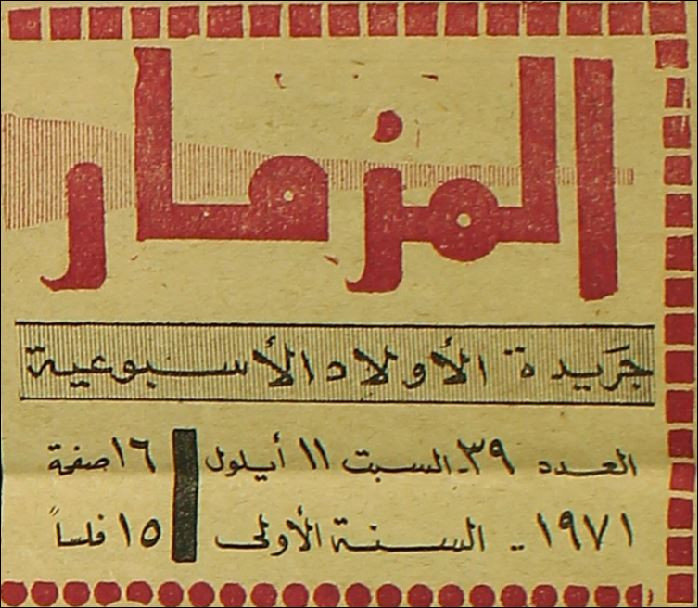 المزمار
جَريدة الأولاد الأسبوعية
العدد ٣٩ـ السبت ١١ أيلول ١٦ صفحة
١٩٧١ ـ السنة الأولى ١٥ فلساً